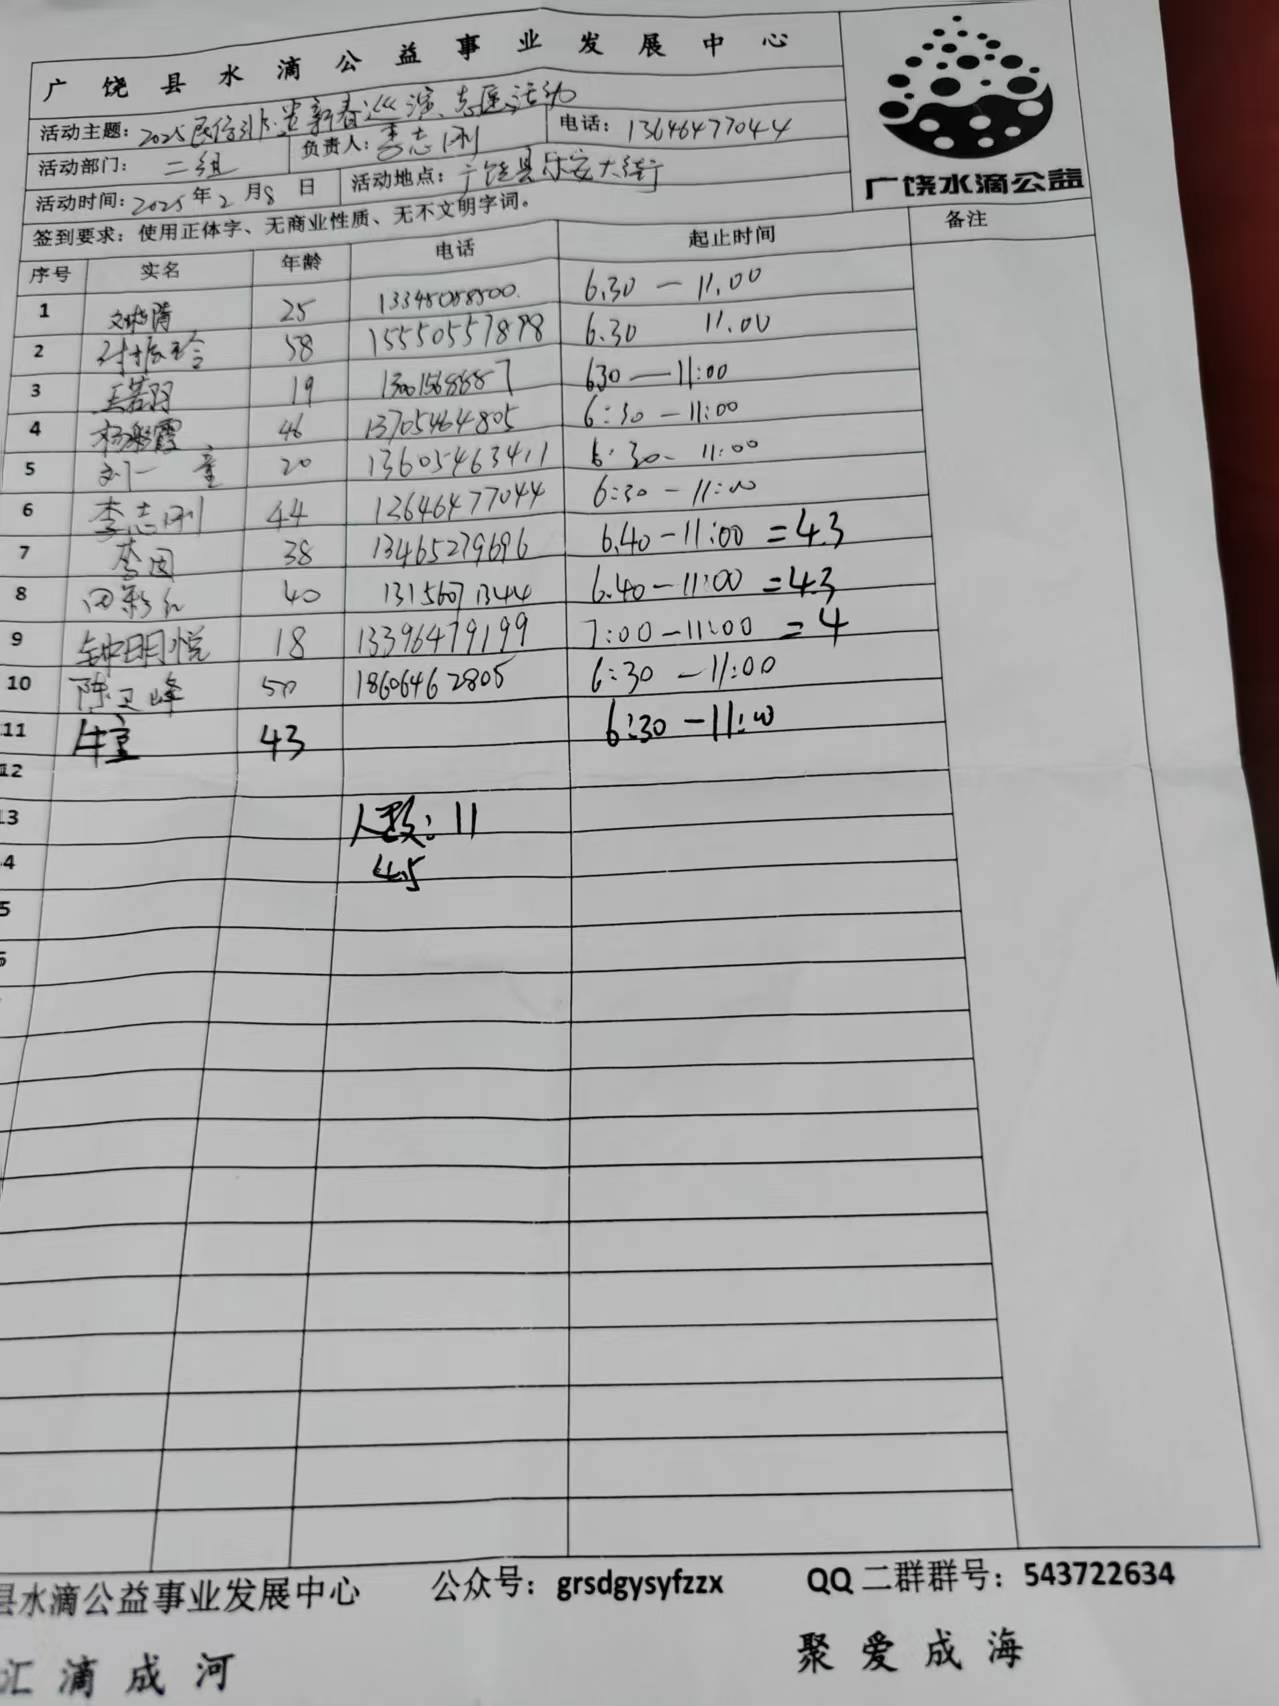 广饶县水滴公益事业发展中心
活动主题：2025民俗非遗新春巡演、志愿活动
活动部门：二组 负责人：李志刚 电话：13646477044
活动时间：2025年2月8日 活动地点：广饶县乐安大街
广饶水滴公益
签到要求：使用正体字、无商业性质、无不文明字词。
序号 实名 年龄 电话 起止时间 备注
1 25 13345058500 6.30 — 11.00
2 58 15550557898 6.30 11.00
3 王若羽 19 630 — 11:00
4 杨彩霞 46 13705464805 6:30 — 11:00
5 刘一童 20 13605463411 6:30 - 11:00
6 李志刚 44 13646477044 6:30 - 11:00
7 李因 38 13465279696 6.40 - 11:00 = 4.3
8 田彩红 40 13156071344 6.40 - 11:00 = 4.3
9 钟明悦 18 13396479199 7:00 - 11:00 = 4
10 陈卫峰 50 18606462805 6:30 — 11:00
11 43 6:30 — 11:00
12
13 人数：11
4 4.5
5
县水滴公益事业发展中心 公众号：grsdgysyfzzx QQ二群群号：543722634
汇滴成河 聚爱成海